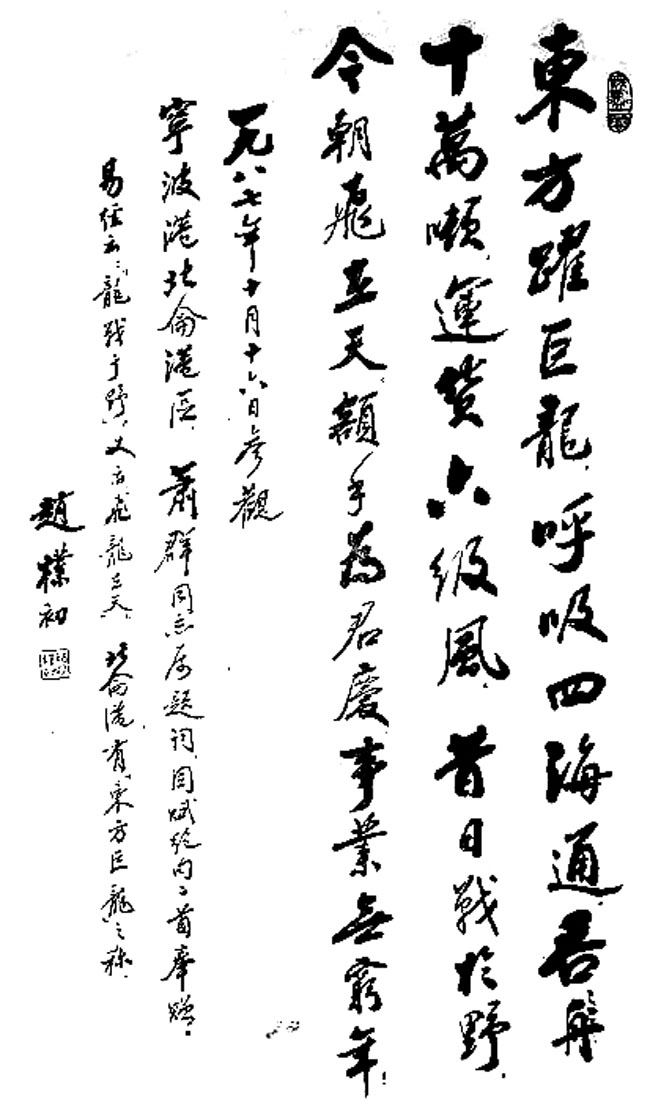 東方躍巨龍，呼吸四海通。吞舟
十萬噸，運貨六級風。昔日戰於野，
今朝飛在天。額手為君慶，事業無窮年！
一九八七年十月十六日參觀
寧波港北侖港區，蕭群同志屬題詞，因賦絕句二首奉贈。
易經云：“龍戰于野”，又云“飛龍在天”，北侖港有“東方巨龍”之稱。
趙樸初